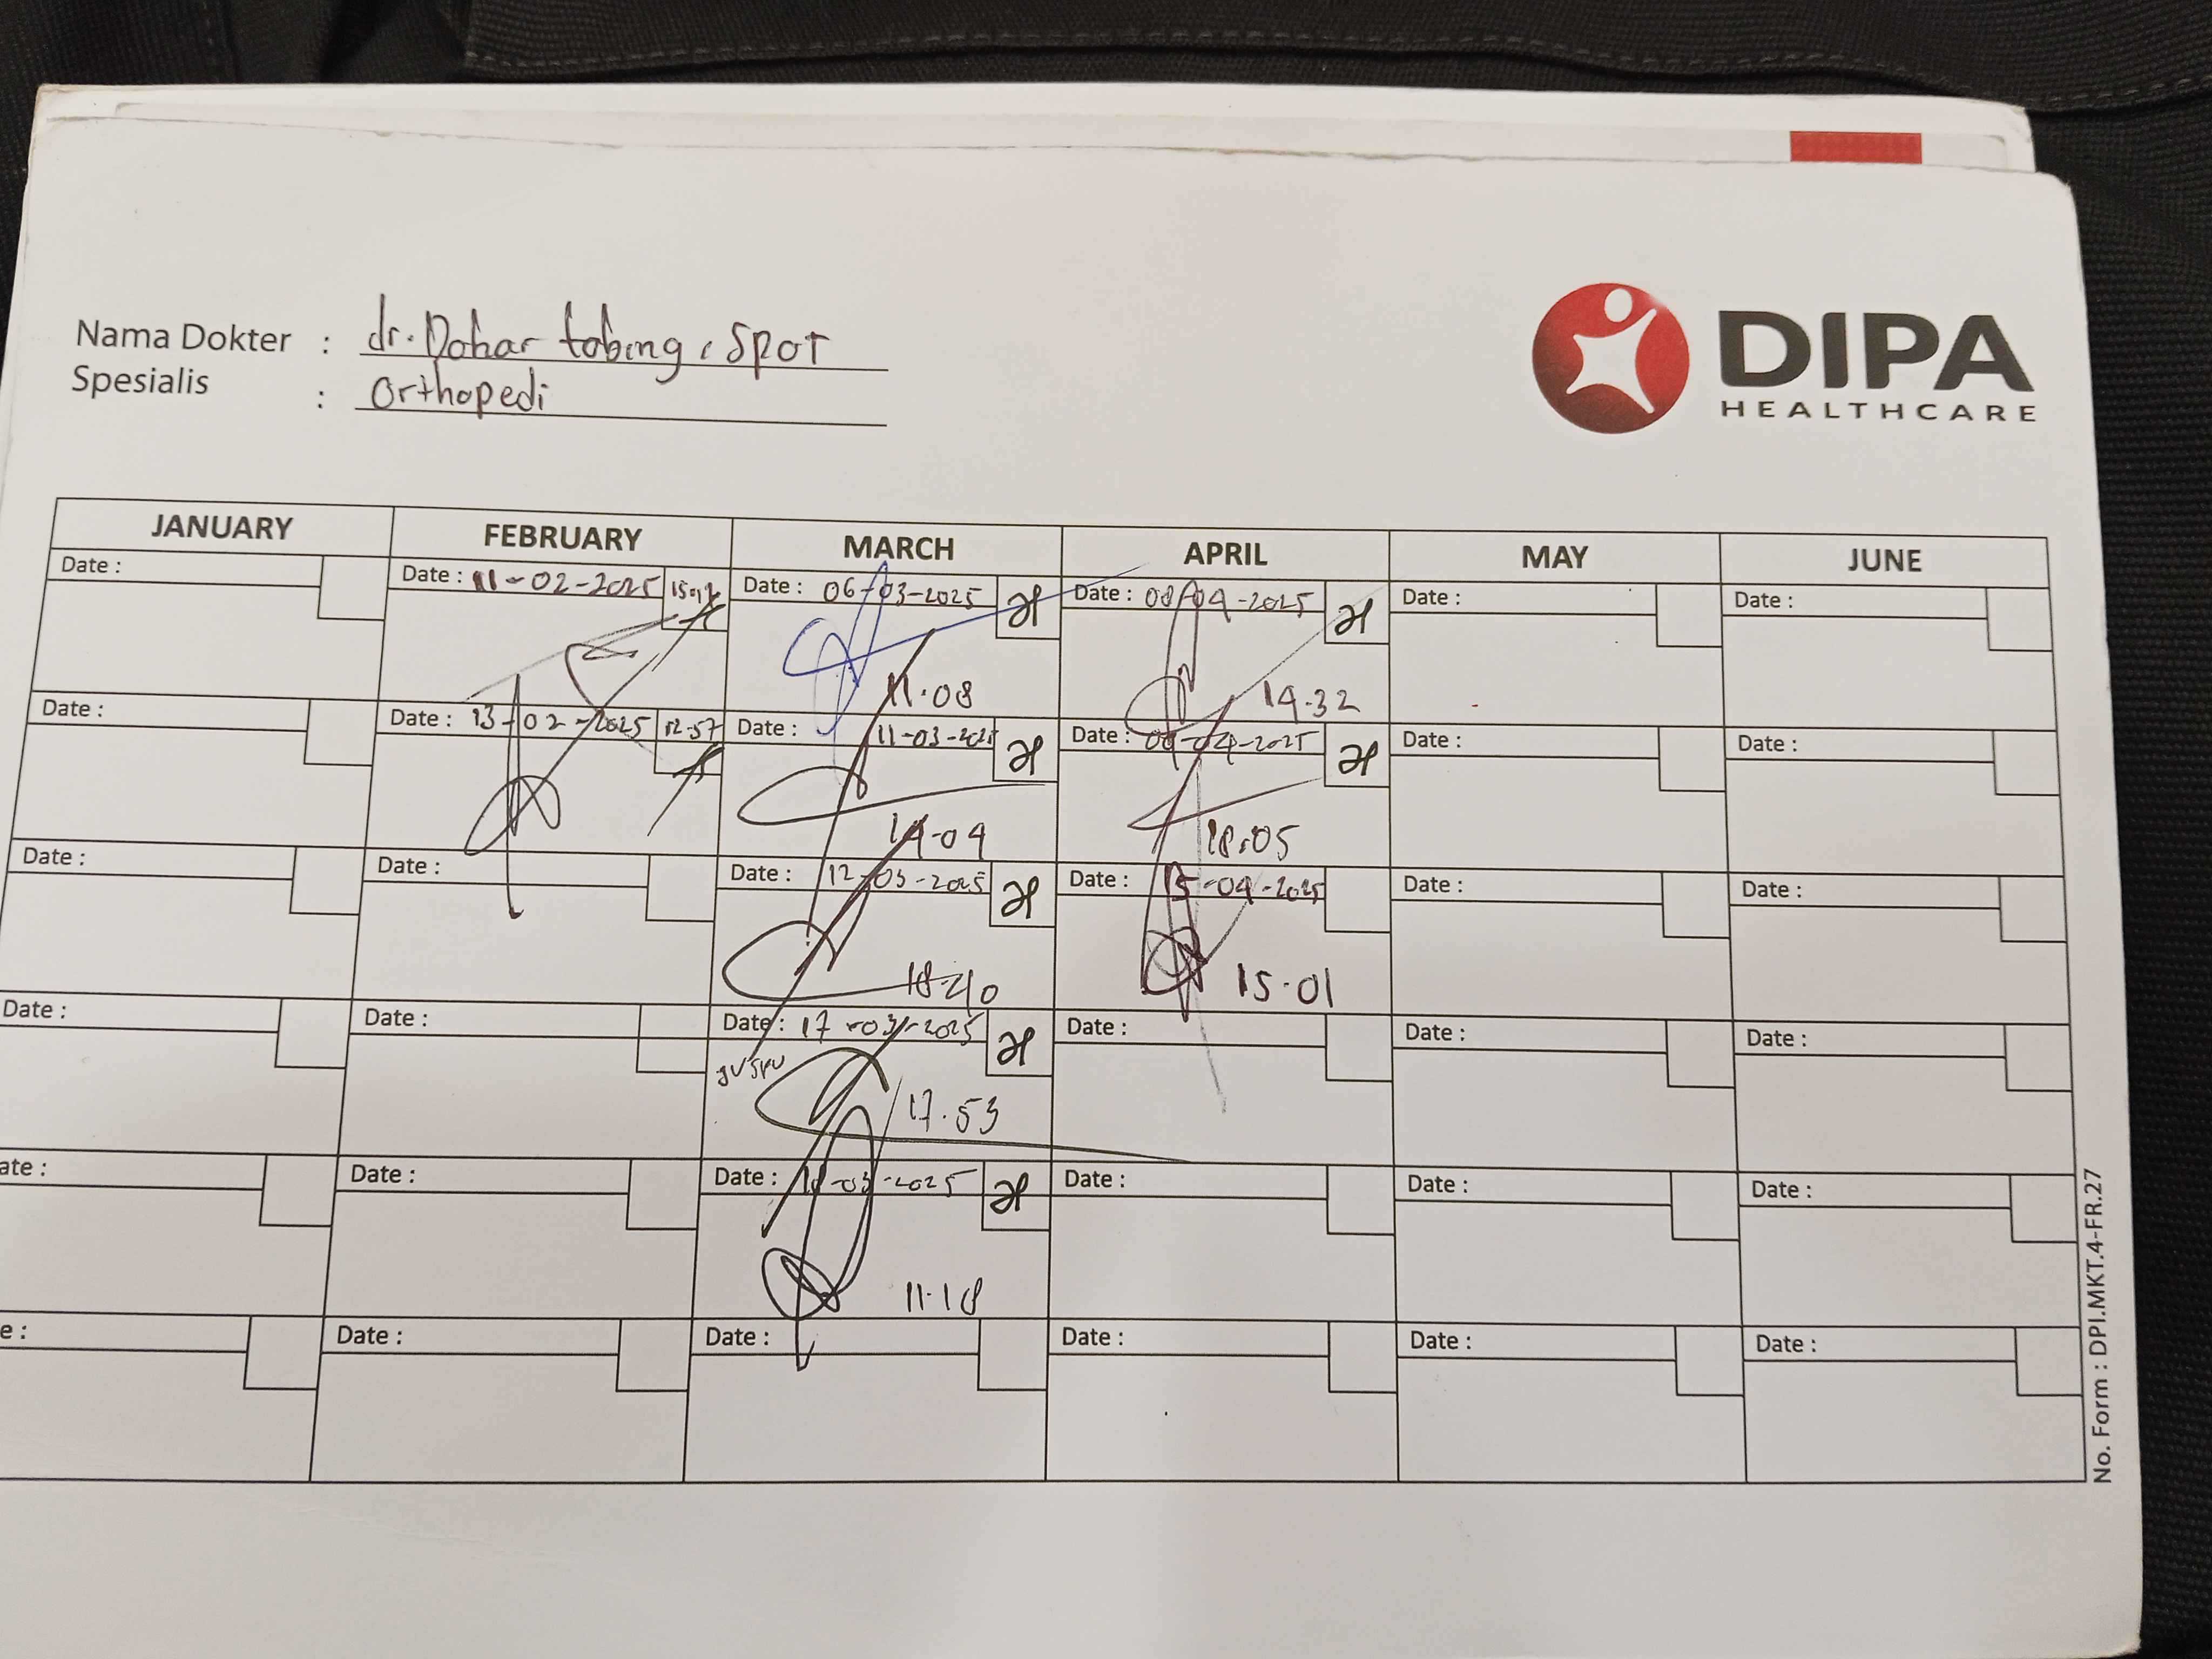 DIPA
HEALTHCARE
Nama Dokter : dr. Dohar tobing, SpOT
Spesialis : Orthopedi
JANUARY FEBRUARY MARCH APRIL MAY JUNE
Date : Date : 11-02-2025 Date : 06-03-2025 Date : 08-04-2025 Date : Date :
11.08 14.32
Date : Date : 13-02-2025 12.57 Date : 11-03-2025 Date : 09-04-2025 Date : Date :
14-04 18.05
Date : Date : Date : 12-03-2025 Date : 15-04-2025 Date : Date :
15.01
Date : Date : Date : 17-03-2025 Date : Date : Date :
17.53
ate : Date : Date : 18-03-2025 Date : Date : Date :
11.18
e : Date : Date : Date : Date : Date :
No. Form : DPI.MKT.4-FR.27